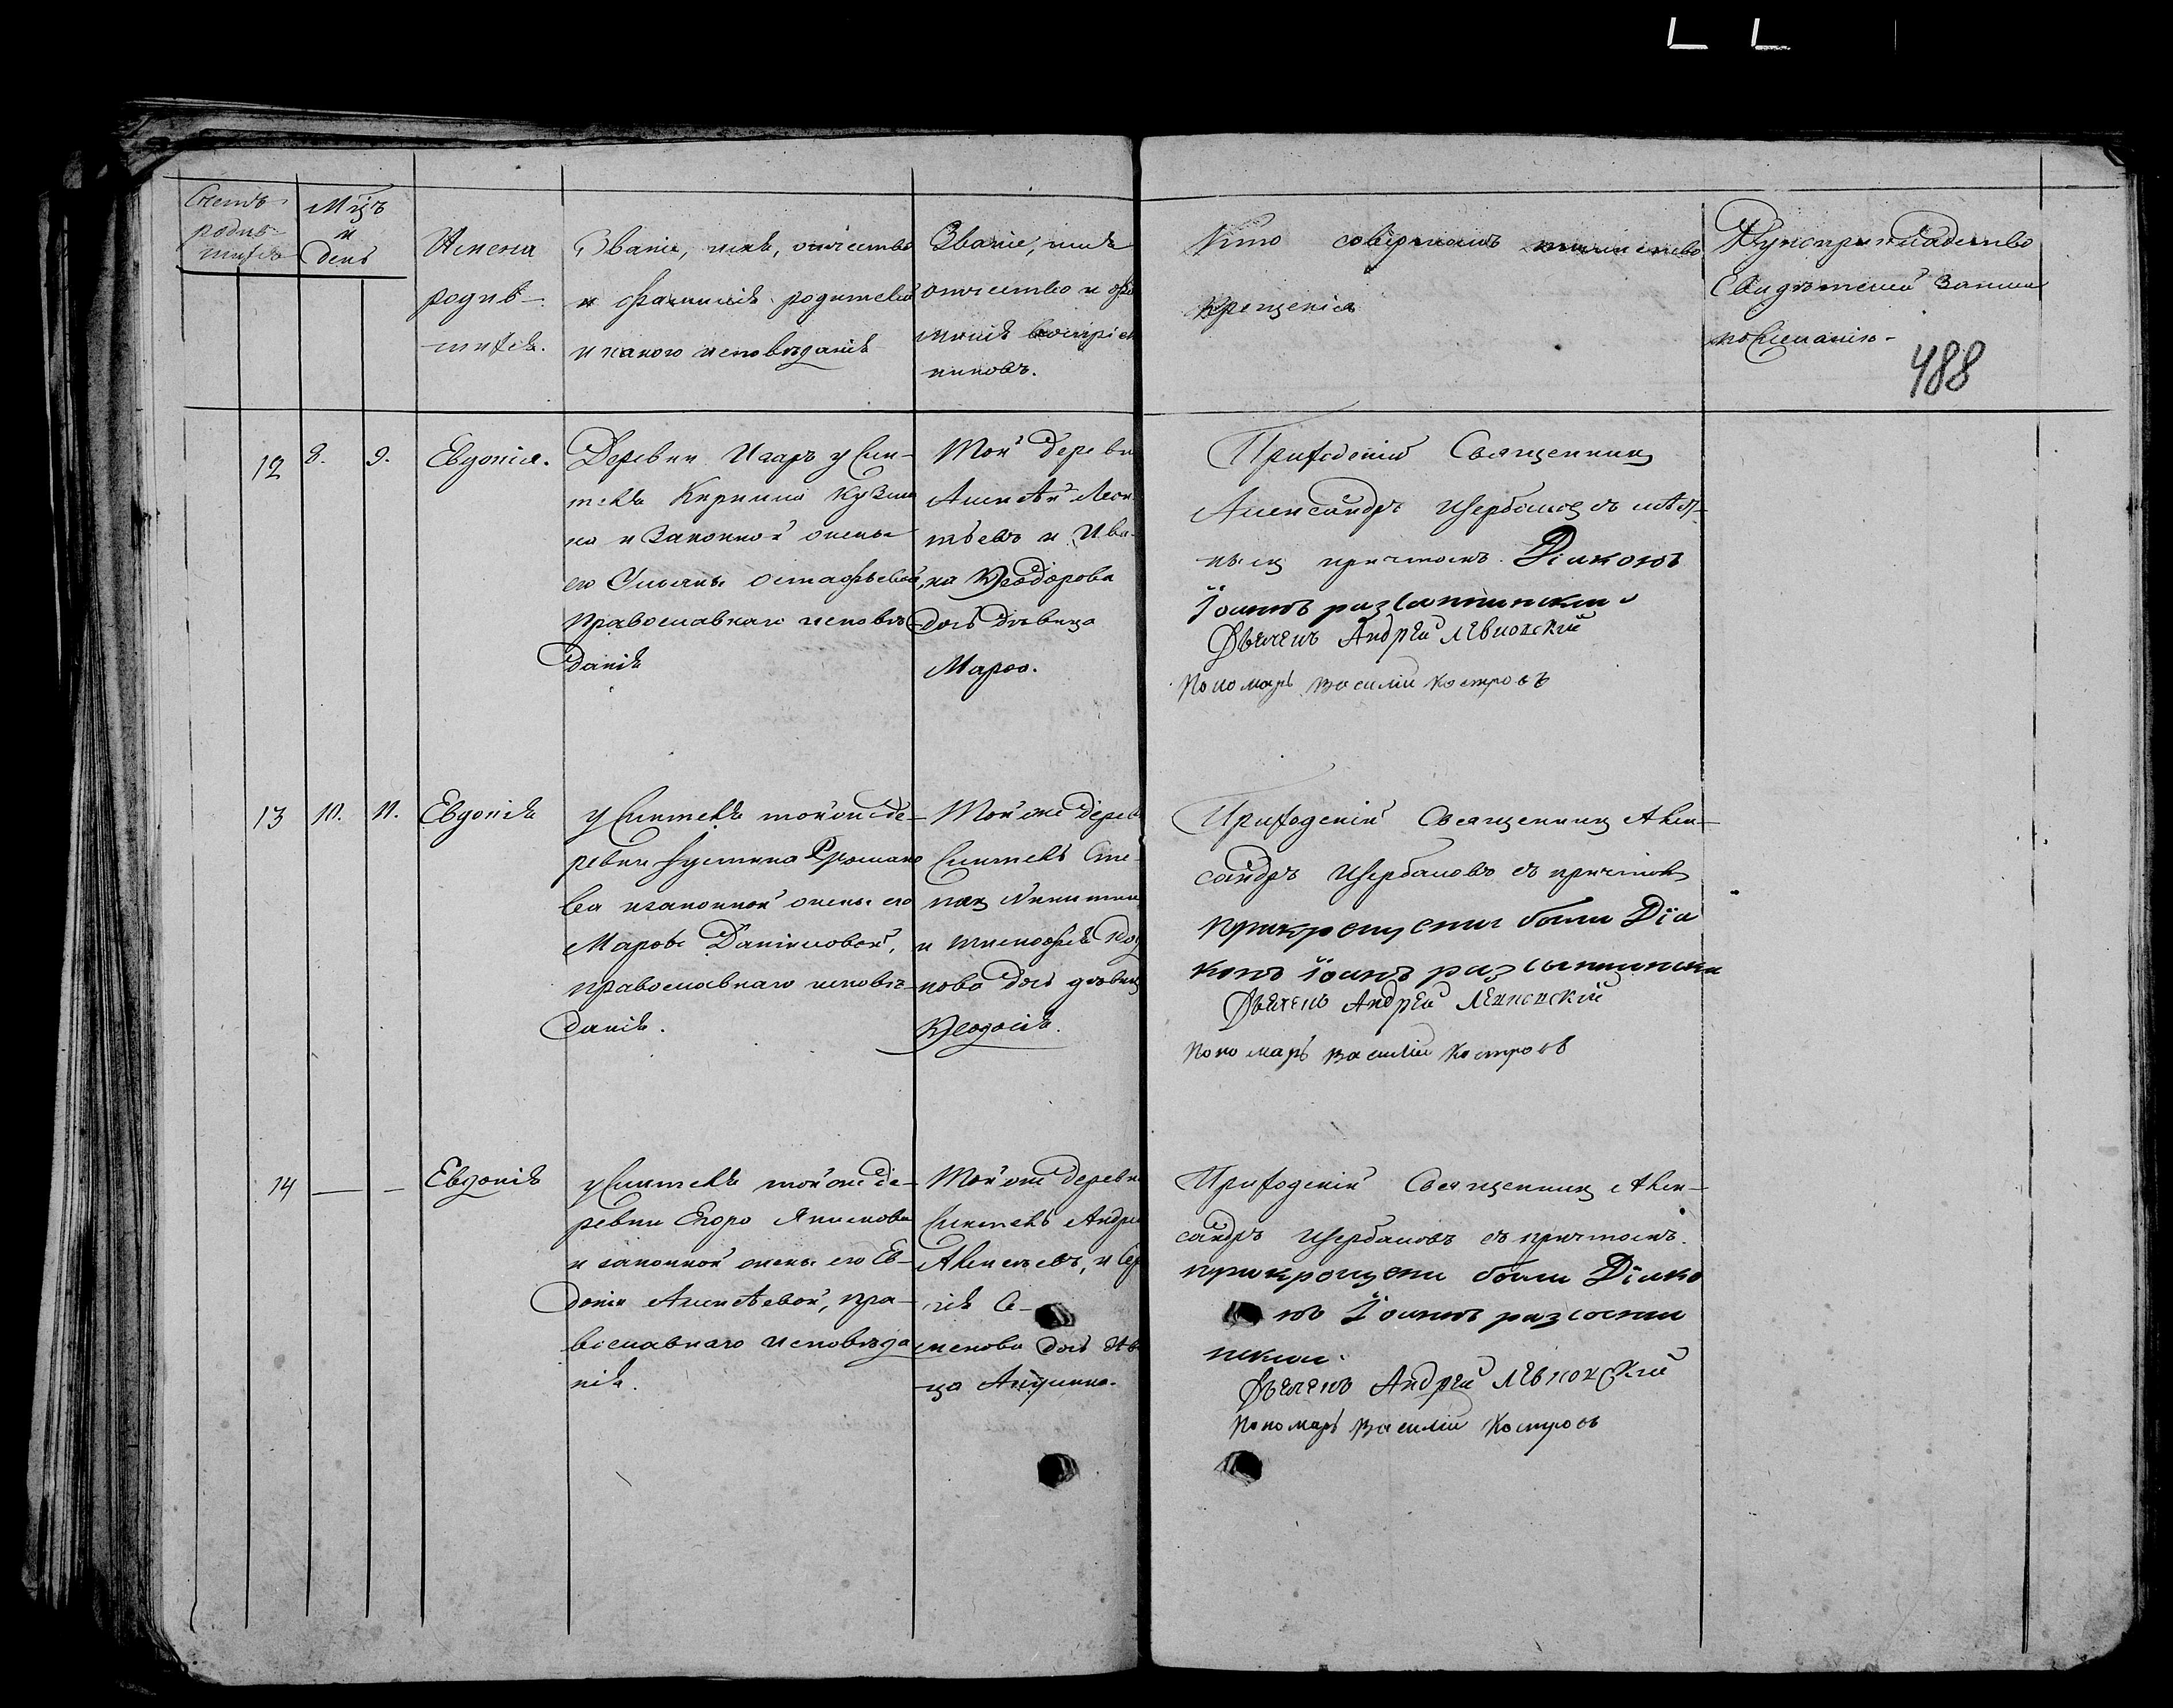 Счетъ
родив-
шихся
Мцъ
и
день
Имена
родив-
шихся.
Званіе, имя, отчество
и фамилія родителей
и какого исповѣданія
Званіе, имя
отчество и фа
милія воспріем
никовъ.
Кто совершалъ таинство
крещенія
Рукоприкладство
Свидѣтелей записи
по желанію.
488
12
8.
9.
Евдокія.
Деревни Игаръ у жи-
теля Кирилла Кузми
на и законной жены
его Остафьевой,
православнаго исповѣ-
данія
Той деревни
Алексѣй Леон
тьевъ и Ива
на Ѳеодорова
дочь дѣвица
Марѳа.
Приходскій Священникъ
Александръ Щербаковъ съ
причтомъ. Діаконъ
Іоаннъ
Дьячекъ Андрей
Пономарь Василій Костровъ
13
10.
11.
Евдокія
у жителя той же де-
ревни Устина Романо
ва и законной жены его
Марѳы Даниловой,
православнаго исповѣ-
данія.
Той же дерев
житель Сте-
панъ Никитин
и
нова дочь дѣвица
Ѳеодосія.
Приходскій Священникъ Алек-
сандръ Щербаковъ съ причтомъ
при крещеніи были Діа
конъ Іоаннъ
Дьячекъ Андрей
Пономарь Василій Костровъ
14
— —
Евдокія
у жителя той же де-
ревни Егора Якимова
и законной жены его Ев-
докіи Алексѣевой, пра-
вославнаго исповѣда
нія.
Той же деревни
житель Андрей
Алексѣевъ, и
Се-
менова дочь дѣви
ца Акулина.
Приходскій Священникъ Алек-
сандръ Щербаковъ съ причтомъ.
при крещеніи были Діако
нъ Іоаннъ
Дьячекъ Андрей
Пономарь Василій Костровъ